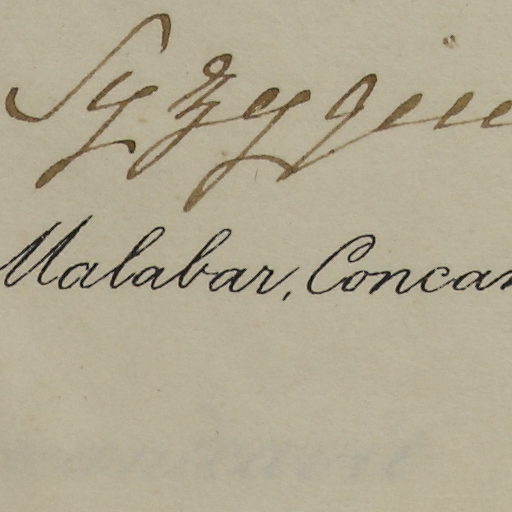 Syzygiu
Malabar, Concan